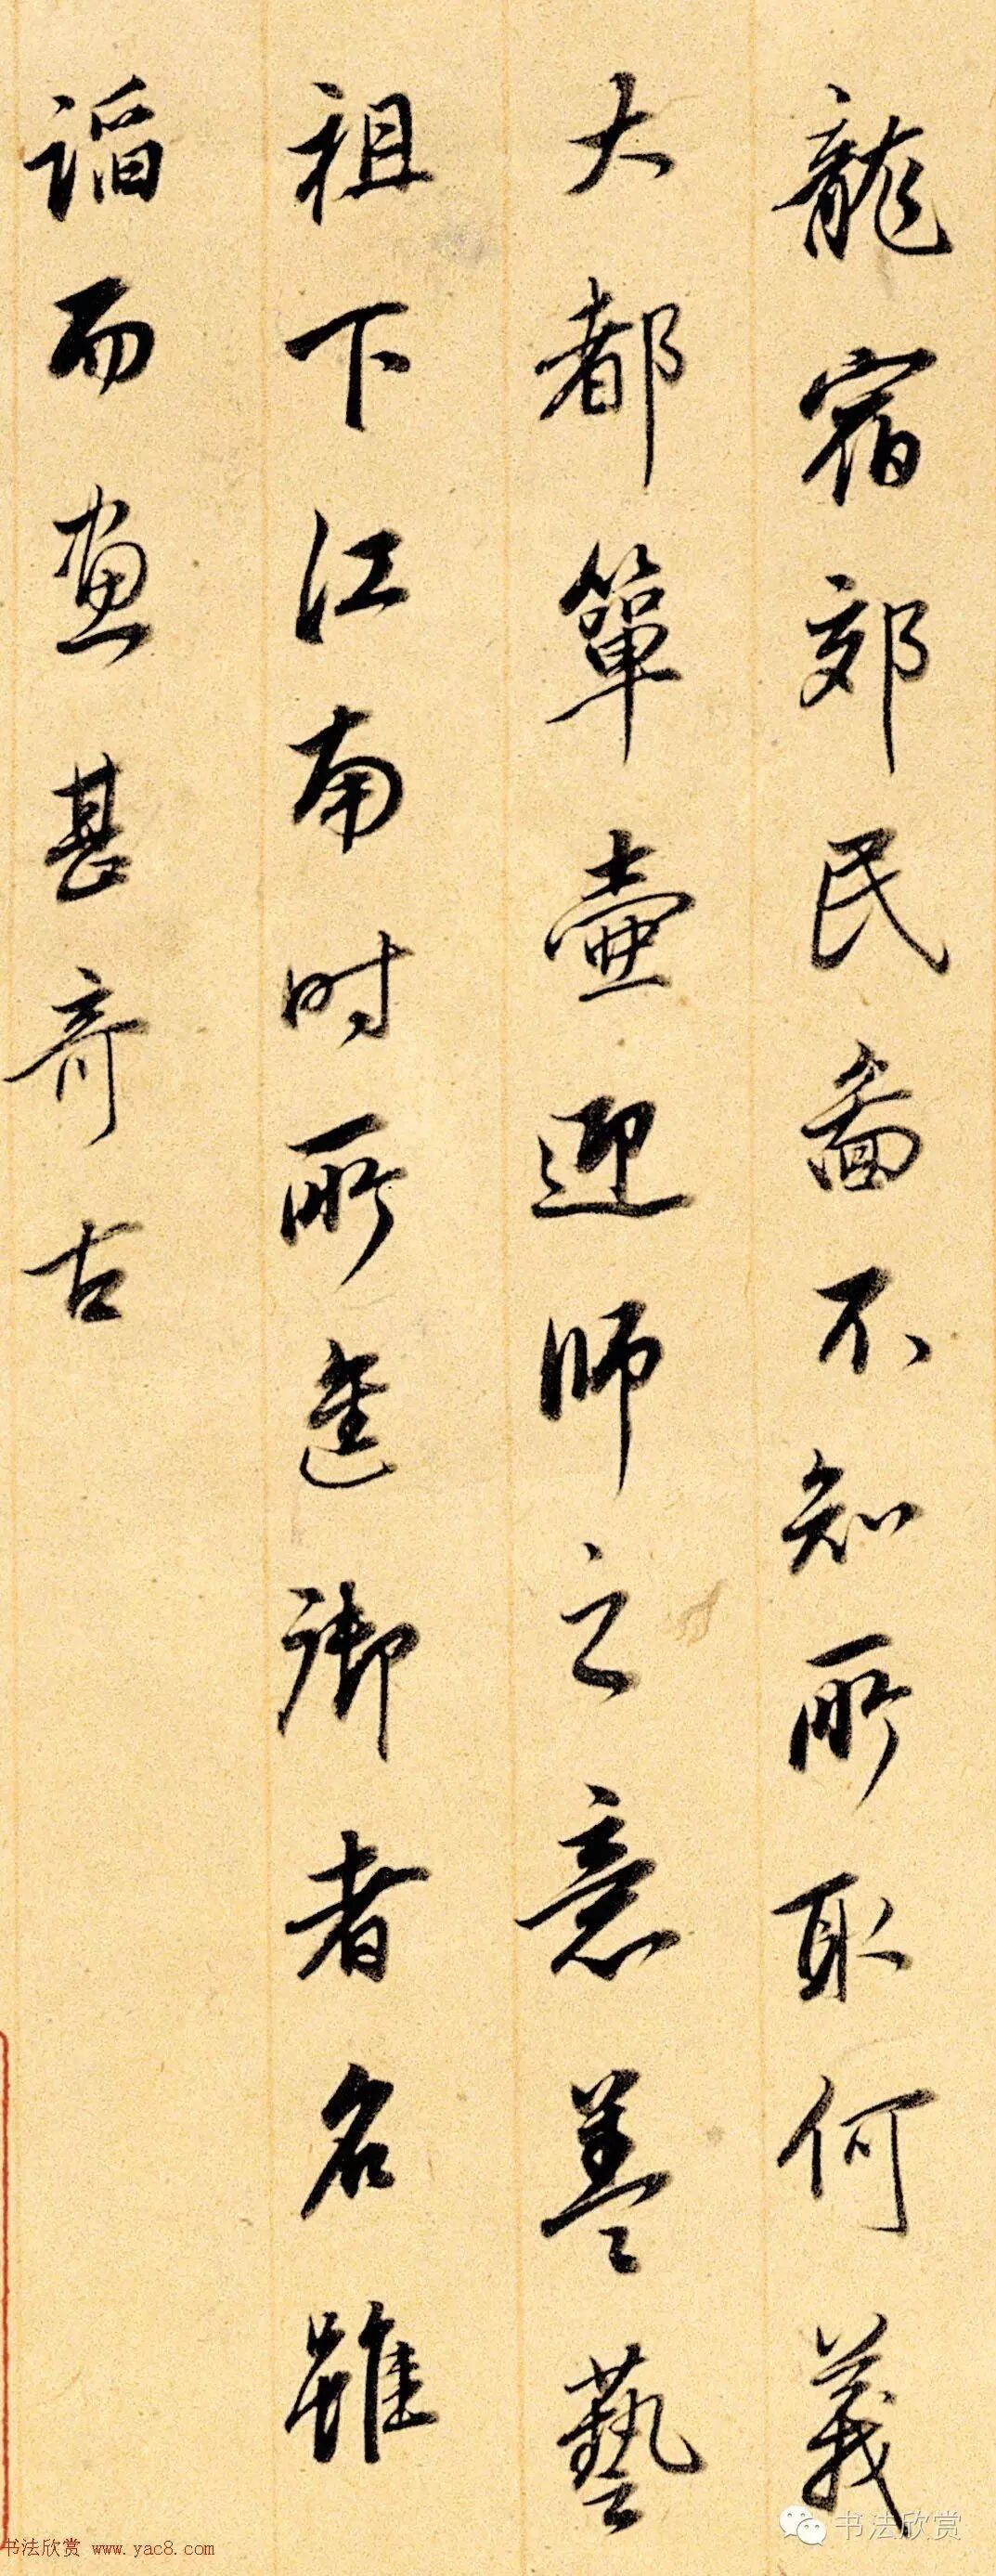 龍宿郊民啚不知所取何義
大都簞壷迎師之意蓋藝
祖下江南时所進御者名雖
謟而画甚奇古
书法欣赏
书法欣赏 www.yac8.com